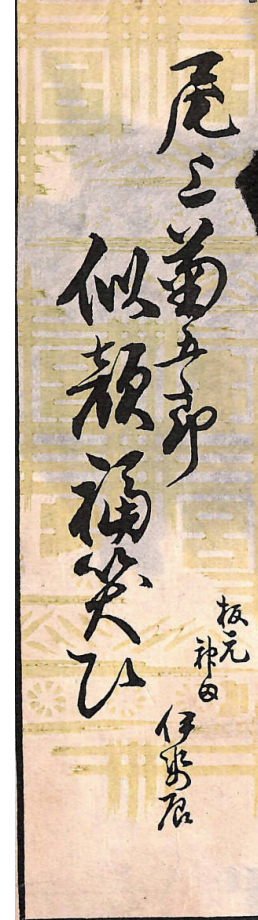 尾上菊五郎
似顔福笑ひ
板元
神田
伊勢辰